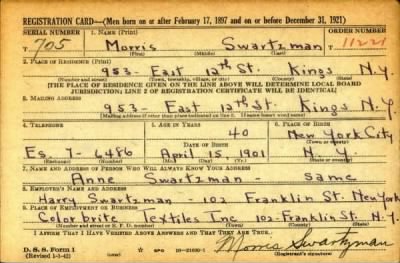 REGISTRATION CARD—(Men born on or after February 17, 1897 and on or before December 31, 1921)
SERIAL NUMBER 1. NAME (Print) ORDER NUMBER
T 705 Morris Swartzman 11221
(First) (Middle) (Last)
2. PLACE OF RESIDENCE (Print)
953 East 12th St. Kings N.Y.
(Number and street) (Town, township, village, or city) (County) (State)
[THE PLACE OF RESIDENCE GIVEN ON THE LINE ABOVE WILL DETERMINE LOCAL BOARD
JURISDICTION; LINE 2 OF REGISTRATION CERTIFICATE WILL BE IDENTICAL]
3. MAILING ADDRESS
953 East 12th St. Kings N.Y.
(Mailing address if other than place indicated on line 2. If same insert word same)
4. TELEPHONE 5. AGE IN YEARS 6. PLACE OF BIRTH
40 New York City
DATE OF BIRTH (Town or county)
Es. 7-6486 April 15 1901 N.Y.
(Exchange) (Number) (Mo.) (Day) (Yr.) (State or country)
7. NAME AND ADDRESS OF PERSON WHO WILL ALWAYS KNOW YOUR ADDRESS
Anne Swartzman - same
8. EMPLOYER'S NAME AND ADDRESS
Harry Swartzman - 102 Franklin St. New York
9. PLACE OF EMPLOYMENT OR BUSINESS
Colorbrite Textiles Inc 102-Franklin St. N.Y.
(Number and street or R. F. D. number) (Town) (County) (State)
I AFFIRM THAT I HAVE VERIFIED ABOVE ANSWERS AND THAT THEY ARE TRUE.
D. S. S. Form 1
(Revised 1-1-42) (over) GPO 16—21630-1 Morris Swartzman
(Registrant's signature)